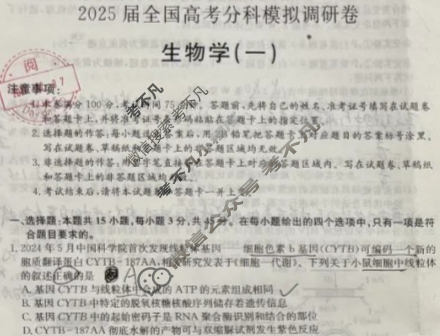 2025届全国高考分科模拟调研卷
生物学(一)
注意事项:
1. 本卷满分100分,考试时间75分钟。答题前,先将自己的姓名、准考证号填写在试题卷
和答题卡上,并将准考证号条形码粘贴在答题卡上的指定位置。
2. 选择题的作答:每小题选出答案后,用2B铅笔把答题卡上对应题目的答案标号涂黑,
写在试题卷、草稿纸和答题卡上的非答题区域均无效。
3. 非选择题的作答:用签字笔直接写在答题卡上对应的答题区域内。写在试题卷、草稿纸
和答题卡上的非答题区域均无效。
4. 考试结束后,请将本试题卷和答题卡一并上交。
一、选择题:本题共15小题,每小题3分,共45分。在每小题给出的四个选项中,只有一项是符
合题目要求的。
1. 2024年5月中国科学院首次发现线粒体基因 细胞色素b基因(CYTB)可编码一个新的
胞质翻译蛋白CYTB-187AA,相关研究发表于《细胞—代谢》。下列关于小鼠细胞中线粒体
的叙述正确的是
A. 基因CYTB与线粒体中合成的ATP的元素组成相同
B. 基因CYTB中特定的脱氧核糖核酸序列储存着遗传信息
C. 基因CYTB中的起始密码子是RNA聚合酶识别和结合的部位
D. CYTB-187AA彻底水解的产物可与双缩脲试剂发生紫色反应